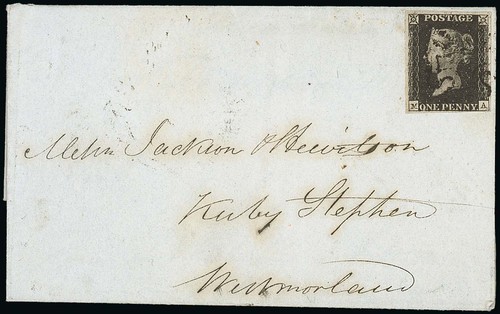 POSTAGE
ONE PENNY
A
Messrs Jackson & Hewitson
Kirby Stephen
Westmorland